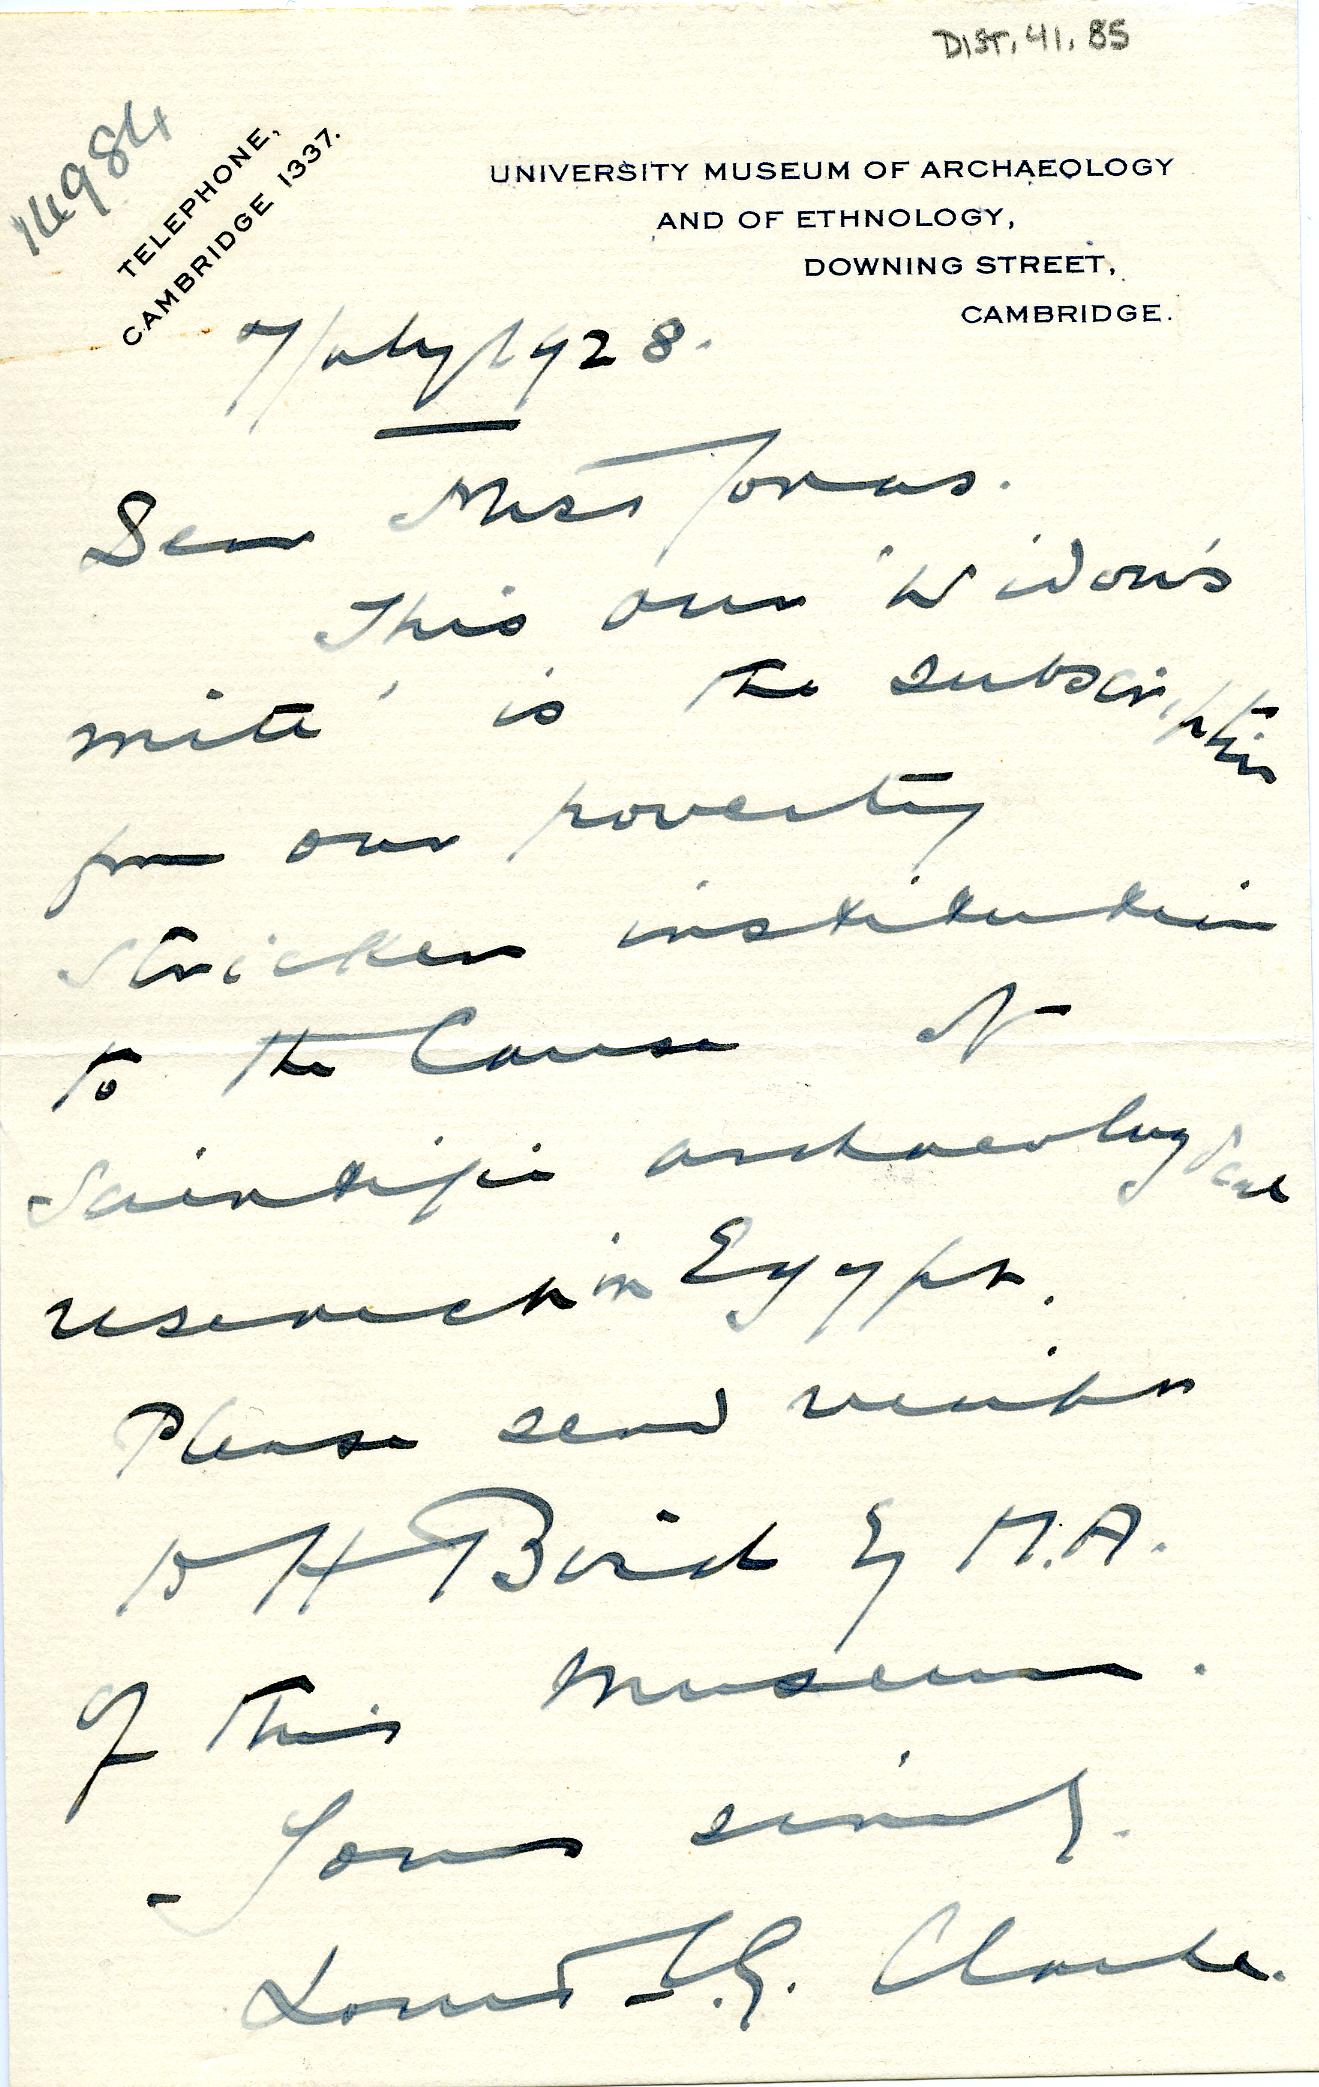 DIST. 41. 85
14984
TELEPHONE,
CAMBRIDGE 1337.
UNIVERSITY MUSEUM OF ARCHAEOLOGY
AND OF ETHNOLOGY,
DOWNING STREET,
CAMBRIDGE.
7/July/1928.
Dear Miss Jonas.
This our 'Widow's
mite' is the subscription
from our poverty
stricken institution
to the Cause of
Scientific archaeological
research in Egypt.
Please send receipt
to H Baird Esq M.A.
of this Museum.
Yours sincerely.
Louis C.G. Clarke.